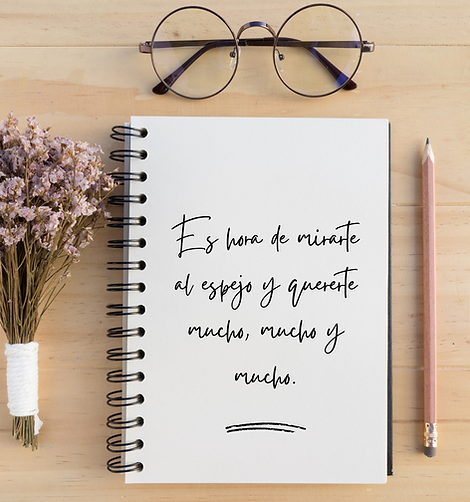 Es hora de mirarte
al espejo y quererte
mucho, mucho y
mucho.